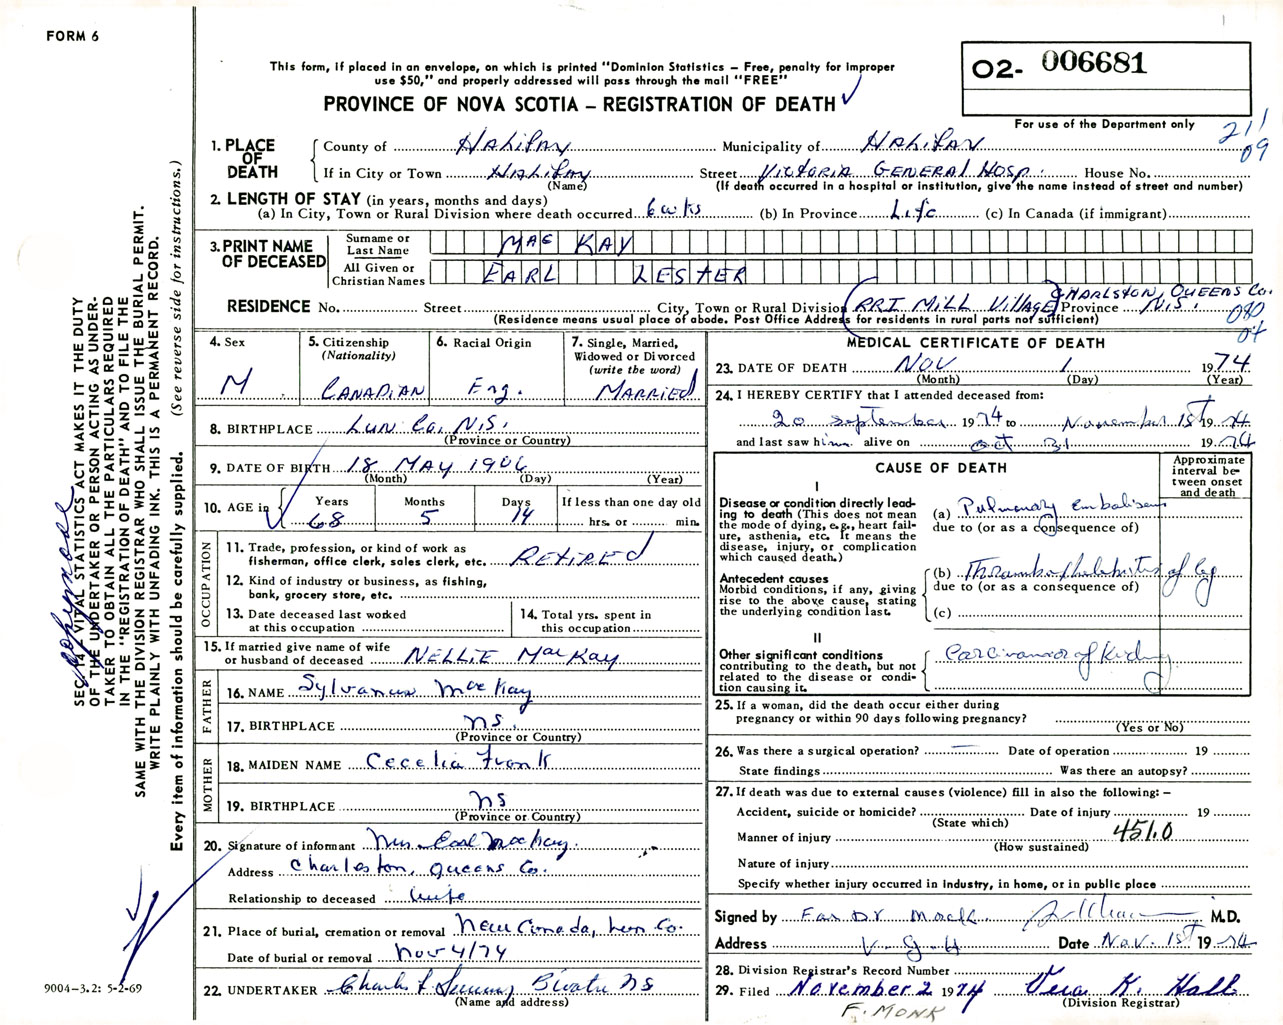 FORM 6
This form, if placed in an envelope, on which is printed "Dominion Statistics – Free, penalty for improper
use $50," and properly addressed will pass through the mail "FREE"
PROVINCE OF NOVA SCOTIA – REGISTRATION OF DEATH
O2- 006681
For use of the Department only
211
09
1. PLACE OF DEATH
County of Halifax Municipality of Halifax
If in City or Town Halifax Street Victoria General Hosp. House No.
(Name) (If death occurred in a hospital or institution, give the name instead of street and number)
2. LENGTH OF STAY (in years, months and days)
(a) In City, Town or Rural Division where death occurred 6 wks (b) In Province Life (c) In Canada (if immigrant)
3. PRINT NAME OF DECEASED
Surname or Last Name MAC KAY
All Given or Christian Names EARL LESTER
CHARLSTON, QUEENS Co.
RESIDENCE No. Street City, Town or Rural Division RR1 MILL VILLAGE Province N.S.
(Residence means usual place of abode. Post Office Address for residents in rural parts not sufficient)
4. Sex M
5. Citizenship (Nationality) CANADIAN
6. Racial Origin Eng.
7. Single, Married, Widowed or Divorced (write the word) MARRIED
8. BIRTHPLACE Lun Co. N.S.
(Province or Country)
9. DATE OF BIRTH 18 MAY 1906
(Month) (Day) (Year)
10. AGE in Years 68 Months 5 Days 14 If less than one day old hrs. or min.
OCCUPATION
11. Trade, profession, or kind of work as
fisherman, office clerk, sales clerk, etc. RETIRED
12. Kind of industry or business, as fishing,
bank, grocery store, etc.
13. Date deceased last worked
at this occupation
14. Total yrs. spent in
this occupation
15. If married give name of wife
or husband of deceased NELLIE MacKay
FATHER
16. NAME Sylvanus MacKay
17. BIRTHPLACE NS.
(Province or Country)
MOTHER
18. MAIDEN NAME Cecelia Frank
19. BIRTHPLACE NS
(Province or Country)
20. Signature of informant Mrs. Earl MacKay.
Address Charleston, Queens Co.
Relationship to deceased Wife
21. Place of burial, cremation or removal New Canada, Lun Co.
Date of burial or removal Nov 4/74
22. UNDERTAKER Charles F NS
(Name and address)
MEDICAL CERTIFICATE OF DEATH
23. DATE OF DEATH NOV 1 1974
(Month) (Day) (Year)
24. I HEREBY CERTIFY that I attended deceased from:
20 September 1974 to November 1st 1974
and last saw him alive on Oct 31 1974
CAUSE OF DEATH
Approximate interval between onset and death
I
Disease or condition directly lead-
ing to death (This does not mean
the mode of dying, e.g., heart fail-
ure, asthenia, etc. It means the
disease, injury, or complication
which caused death.)
(a) Pulmonary embolism
due to (or as a consequence of)
Antecedent causes
Morbid conditions, if any, giving
rise to the above cause, stating
the underlying condition last.
(b) Thrombophlebitis of leg
due to (or as a consequence of)
(c)
II
Other significant conditions
contributing to the death, but not
related to the disease or condi-
tion causing it.
Carcinoma of Kidney
25. If a woman, did the death occur either during
pregnancy or within 90 days following pregnancy?
(Yes or No)
26. Was there a surgical operation? — Date of operation 19
State findings Was there an autopsy?
27. If death was due to external causes (violence) fill in also the following: –
Accident, suicide or homicide? Date of injury 19
(State which)
Manner of injury 451.0
(How sustained)
Nature of injury
Specify whether injury occurred in industry, in home, or in public place
Signed by For Dr M.D.
Address V.G.H Date Nov. 1st 1974
28. Division Registrar's Record Number
29. Filed November 2 1974 Vera K. Hall
(Division Registrar)
F. MONK
SEC. 14 – VITAL STATISTICS ACT MAKES IT THE DUTY
OF THE UNDERTAKER OR PERSON ACTING AS UNDER-
TAKER TO OBTAIN ALL THE PARTICULARS REQUIRED
IN THE "REGISTRATION OF DEATH" AND TO FILE THE
SAME WITH THE DIVISION REGISTRAR WHO SHALL ISSUE THE BURIAL PERMIT.
WRITE PLAINLY WITH UNFADING INK. THIS IS A PERMANENT RECORD.
Every item of information should be carefully supplied. (See reverse side for instructions.)
9004-3.2: 5-2-69